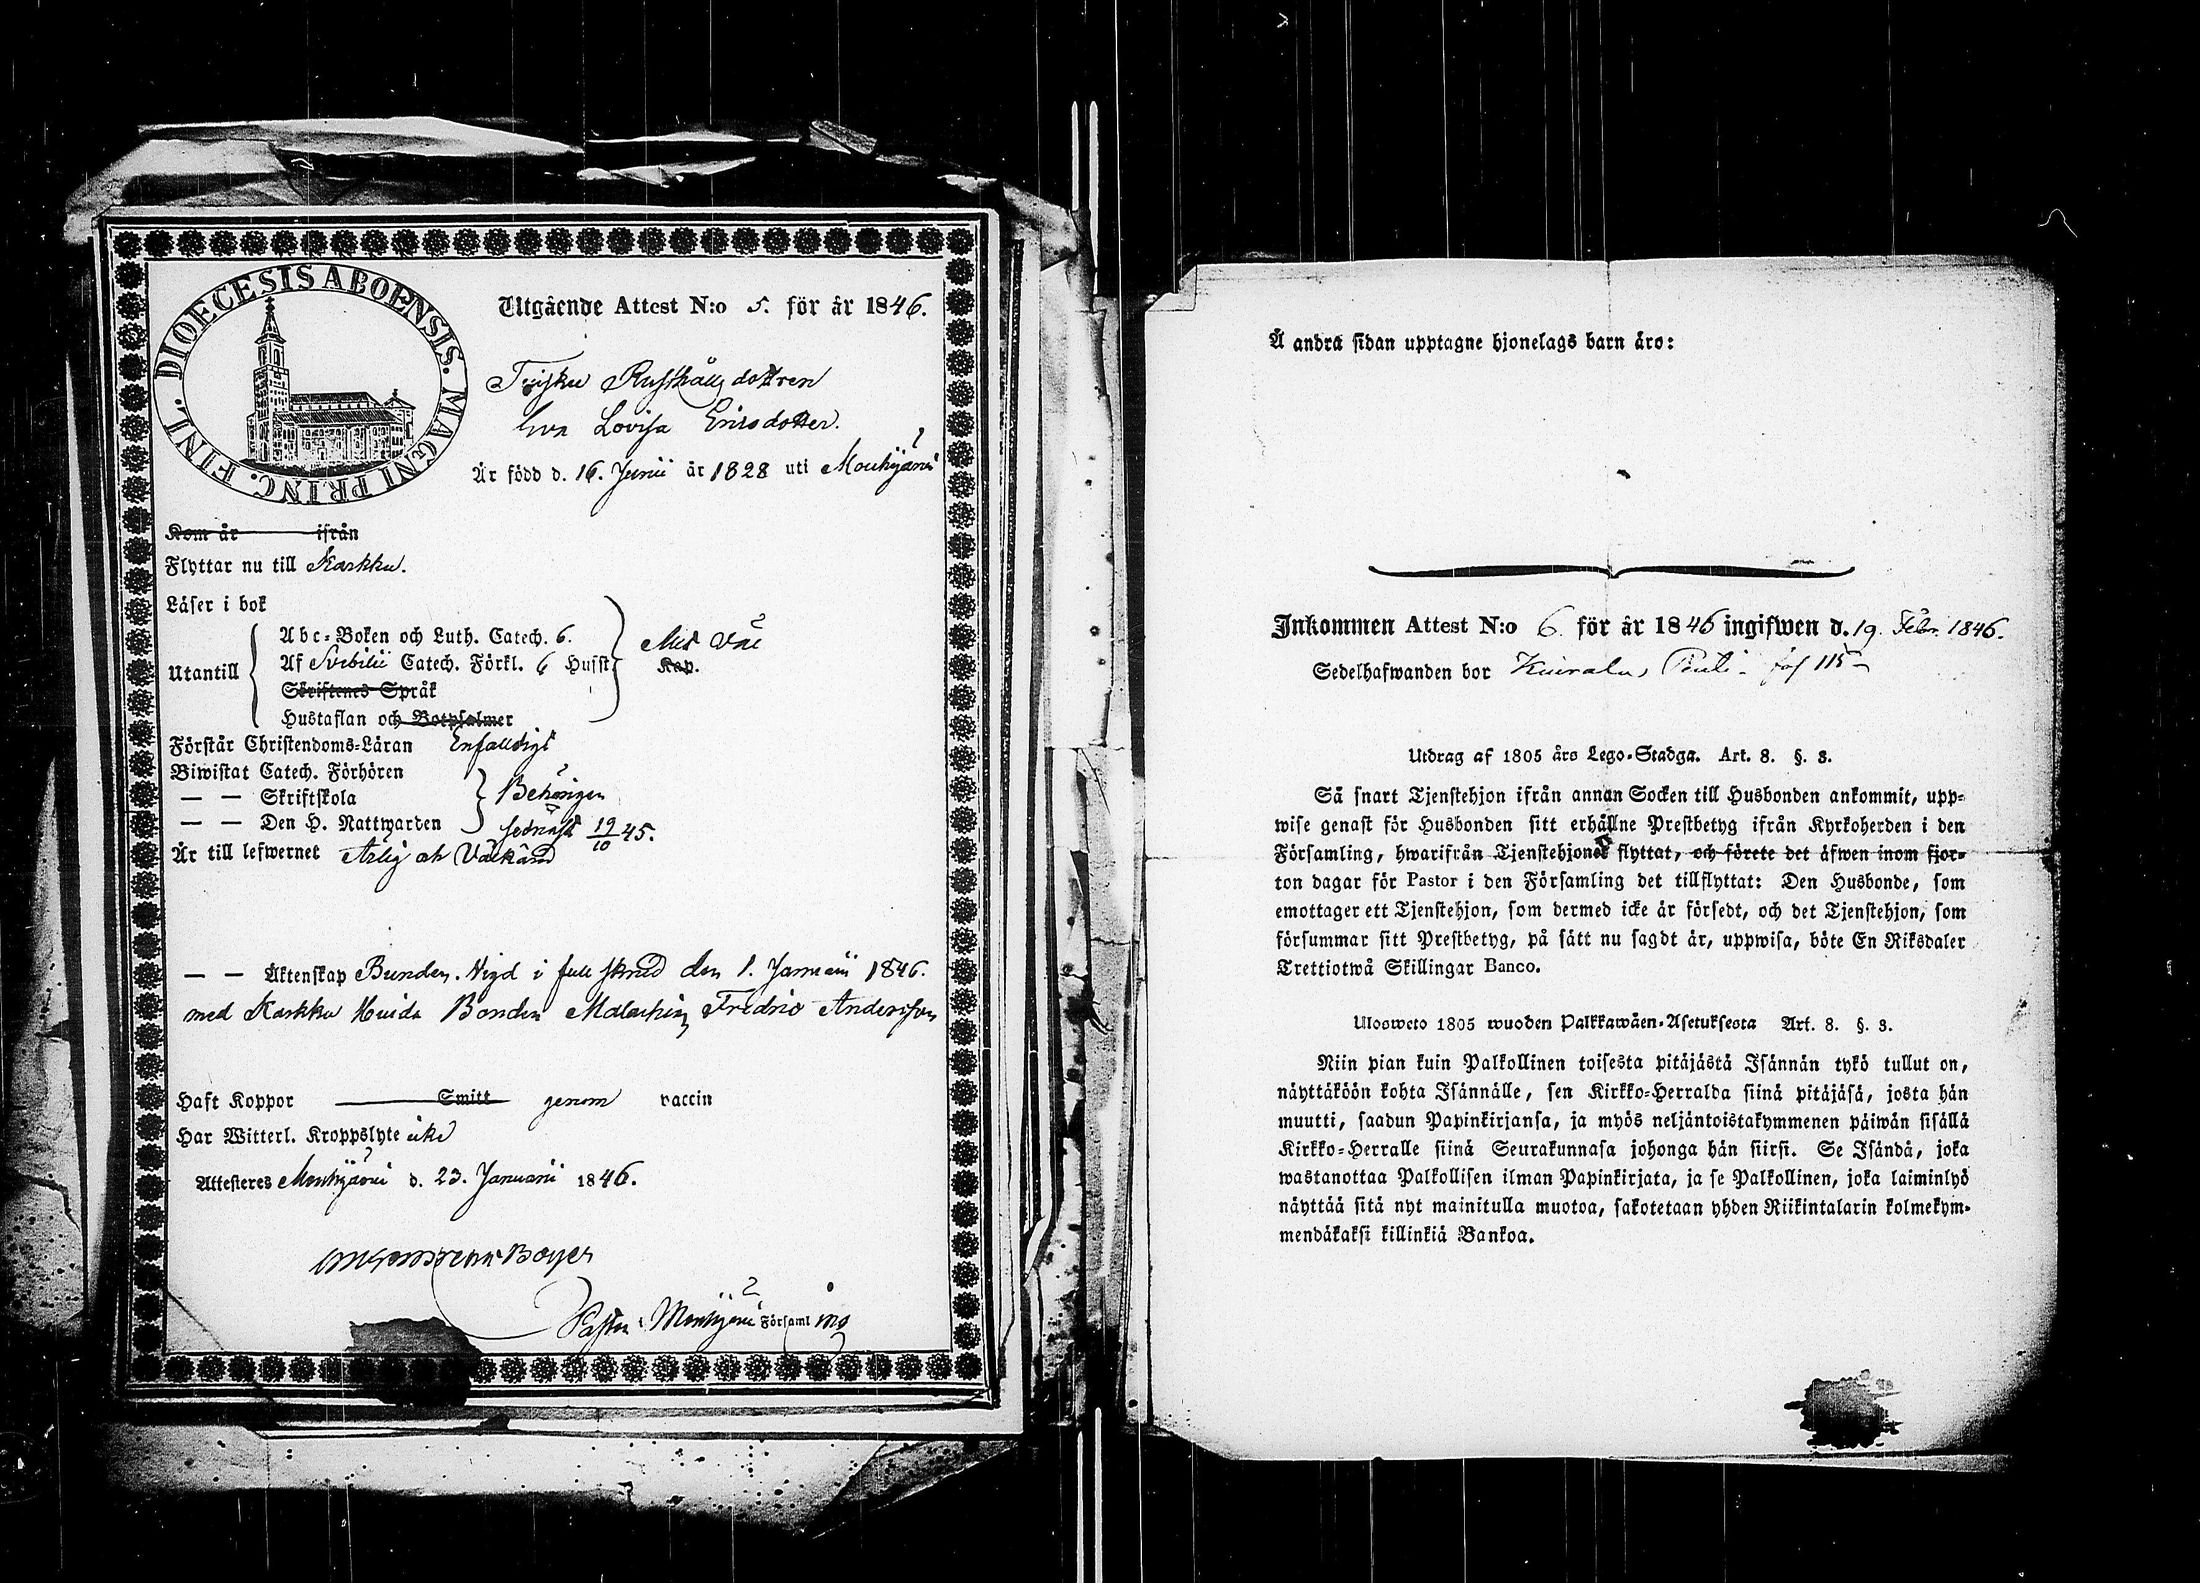 DIOECESIS ABOENSIS. MAGNI PRINC. FINL.
Utgående Attest N:o 5. för år 1846.
Rusthålls dottren
Eva Lovisa Ericsdotter.
Är född d. 16. Junii år 1828 uti Mouhijärvi
Kom år ifrån
Flyttar nu till Karkku.
Läser i bok
Utantill
Abc-Boken och Luth. Catech. 6.
Af Svebilii Catech. Förkl. 6 Husst.
Skriftenes Språk
Hustaflan och Botpsalmer
Kap.
Förstår Christendoms-Läran Enfaldigt
Biwistat Catech. Förhören
— — Skriftskola
— — Den H. Nattwarden
Behörigen
sednast 19/10 45.
Är till lefwernet Ärlig och Välkänd
— — Äktenskap Bunden. Vigd i full skrud den 1. Januarii 1846.
med Karkku Bonden Malachias Fredric Andersson
Haft Koppor Smitt genom vaccin
Har Witterl. Kroppslyte icke
Attesteres Mouhijärvi d. 23. Januarii 1846.
Pastor i Mouhijärvi Församling
Å andra sidan upptagne hjonelags barn äro:
Inkommen Attest N:o 6. för år 1846 ingifwen d. 19. Febr. 1846.
Sedelhafwanden bor Kiurala, 115
Utdrag af 1805 års Lego-Stadga. Art. 8. §. 3.
Så snart Tjenstehjon ifrån annan Socken till Husbonden ankommit, upp-
wise genast för Husbonden sitt erhållne Prestbetyg ifrån Kyrkoherden i den
Församling, hwarifrån Tjenstehjonet flyttat, och förete det äfwen inom fjor-
ton dagar för Pastor i den Församling det tillflyttat: Den Husbonde, som
emottager ett Tjenstehjon, som dermed icke är försedt, och det Tjenstehjon, som
försummar sitt Prestbetyg, på sätt nu sagdt är, uppwisa, böte En Riksdaler
Trettiotwå Skillingar Banco.
Ulosweto 1805 wuoden Palkkawäen-Asetuksesta Art. 8. §. 3.
Niin pian kuin Palkollinen toisesta pitäjästä Isännän tykö tullut on,
näyttäköön kohta Isännälle, sen Kirkko-Herralda siinä pitäjäsä, josta hän
muutti, saadun Papinkirjansa, ja myös neljäntoistakymmenen päiwän sisällä
Kirkko-Herralle siinä Seurakunnasa johonga hän siirsi. Se Isändä, joka
wastanottaa Palkollisen ilman Papinkirjata, ja se Palkollinen, joka laiminlyö
näyttää sitä nyt mainitulla muotoa, sakotetaan yhden Riikintalarin kolmekym-
mendäkaksi killinkiä Bankoa.